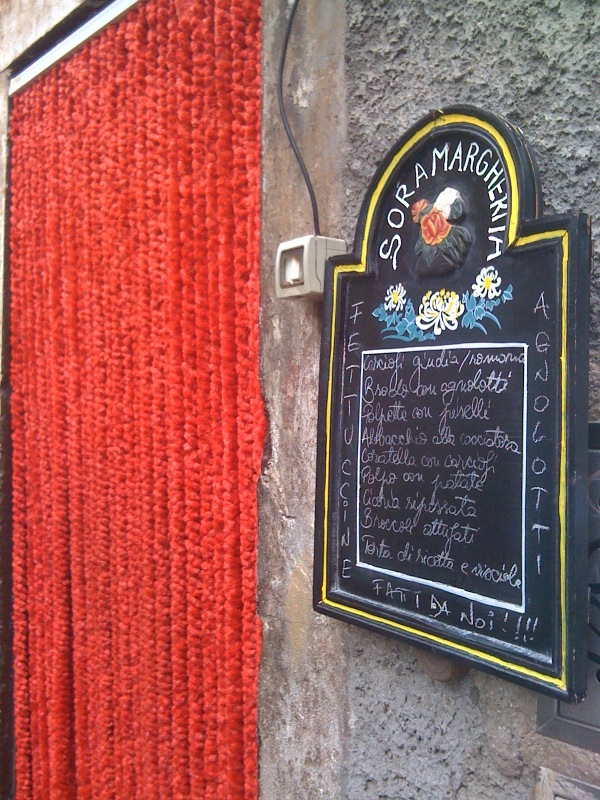 SORA MARGHERITA
FETTUCCINE
Carciofi giudia/romana
Brodo con agnolotti
Polpette con piselli
Abbacchio alla cacciatora
Coratella con carciofi
Polpo con patate
Cicoria ripassata
Broccoli attufati
Torta di ricotta e visciole
AGNOLOTTI
FATTI DA NOI!!!!